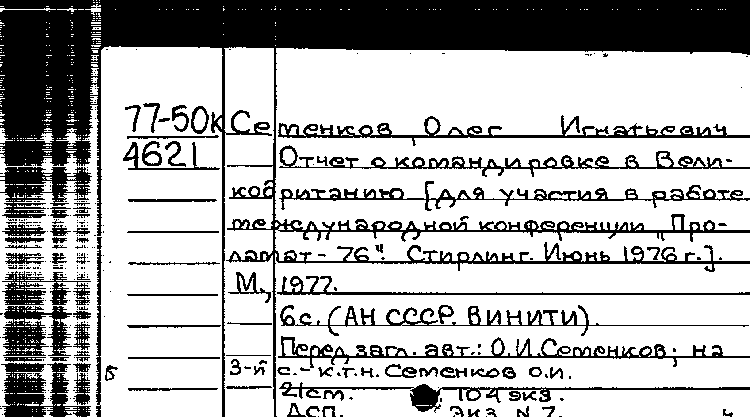 77-50к Семенков, Олег Игнатьевич
4621 Отчет о командировке в Вели-
кобританию [для участия в работе
международной конференции „Про-
ламат-76". Стирлинг. Июнь 1976 г.].
М., 1977.
6 с. (АН СССР. ВИНИТИ).
Перед загл. авт.: О.И.Семенков; на
3-й с. - к.т.н. Семенков О.И.
Б
21см. 104 экз.
ДСП. Экз. N 7.